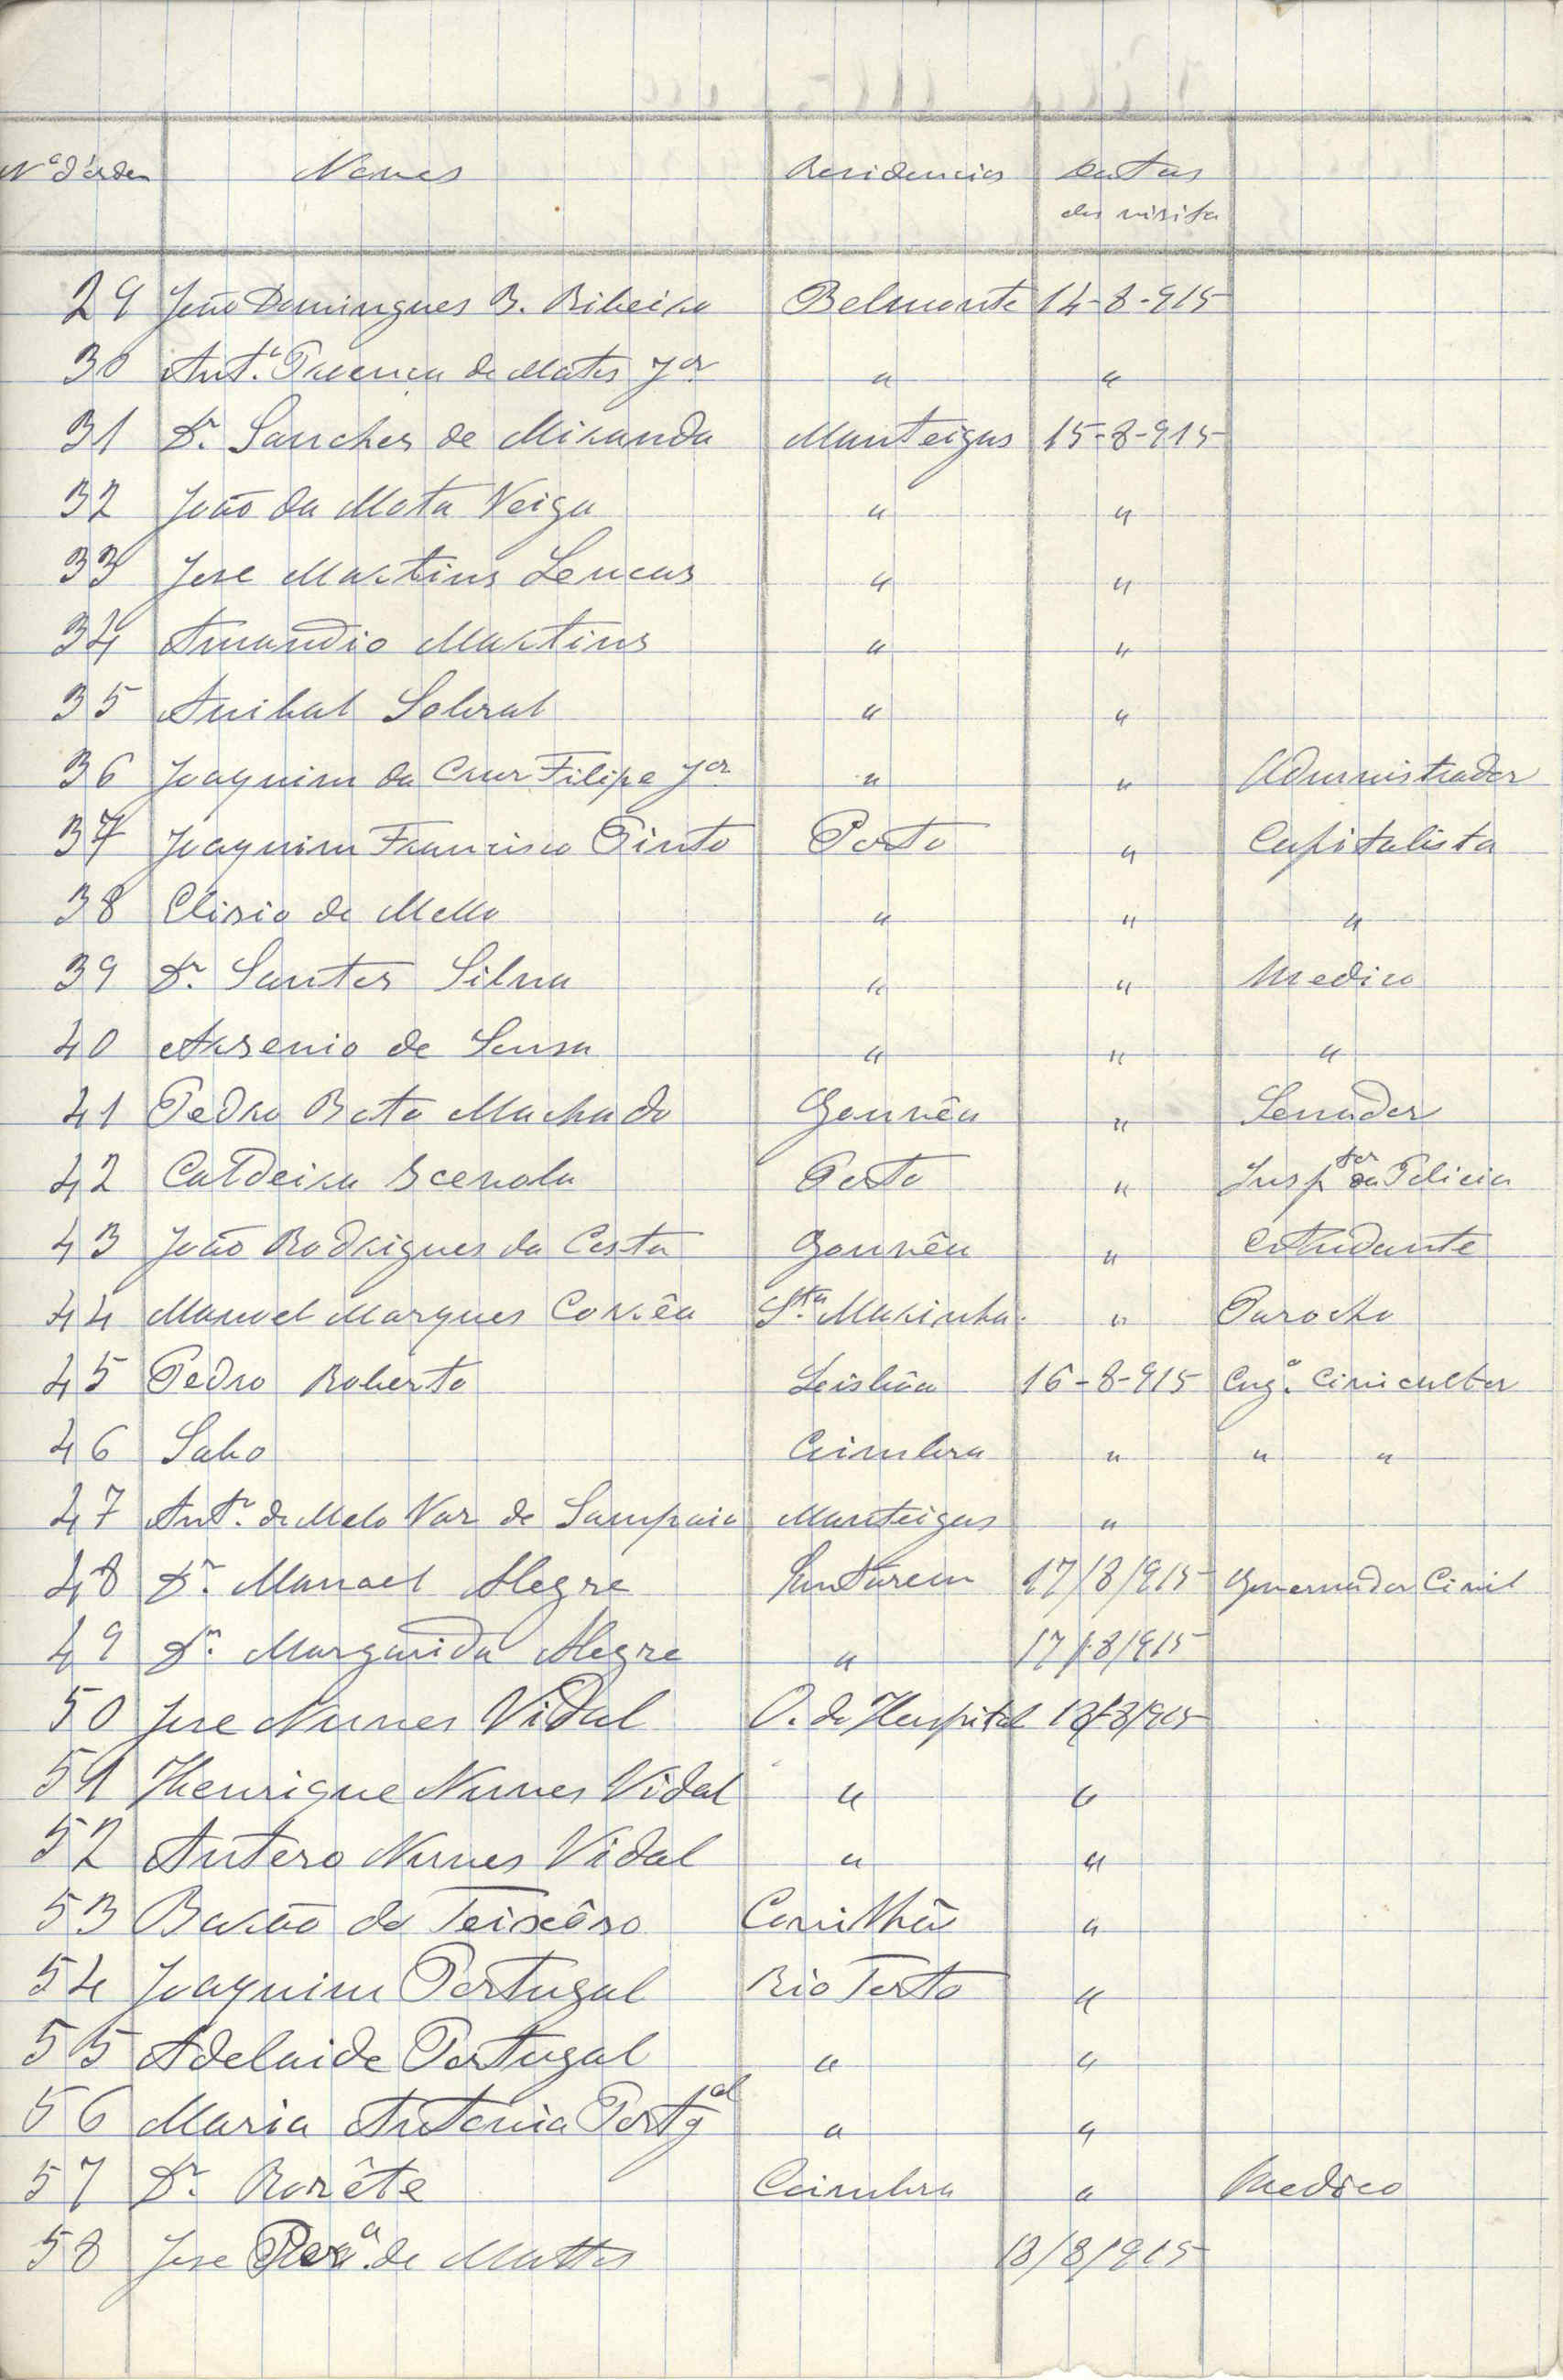 Nº d'orden Nomes Residencias Datas
da visita
29 João Domingues B. Ribeiro Belmonte 14-8-915
30 Antº. Proença de Matos Jor " "
31 Dr. Sanches de Miranda Manteigas 15-8-915
32 João da Mota Veiga " "
33 Jose Martins Leucas " "
34 Amandio Martins " "
35 Anibal Sobral " "
36 Joaquim da Cruz Filipe Jor " " Administrador
37 Joaquim Francisco Pinto Porto " Capitalista
38 Elisio de Mello " " "
39 Dr. Santos Silva " " Medico
40 Arsenio de Sousa " " "
41 Pedro Boto Machado Gouvêa " Senador
42 Caldeira Scevola Porto " Insptor da Policia
43 João Rodrigues da Costa Gouvêa " Estudante
44 Manoel Marques Corrêa Sta. Marinha "  Parocho
45 Pedro Roberto Leisbôa 16-8-915 Engº. Civicultor
46 Coimbra " " "
47 Antº. de Melo Vaz de Sampaio Manteigas "
48 Dr. Manoel Alegre Santarem 17/8/915 Governador Civil
49 Dª. Margarida Alegre " 17/8/915
50 Jose Nunes Vidal O. do Hospital 18/8/915
51 Henrique Nunes Vidal " "
52 Antero Nunes Vidal " "
53 Barão do Teixôso Covilhã "
54 Joaquim Portugal Rio Torto "
55 Adelaide Portugal " "
56 Maria Antonia Portgal " "
57 Dr. Rorête Coimbra " Medico
58 Jose Perª. de Mattos 18/8/915